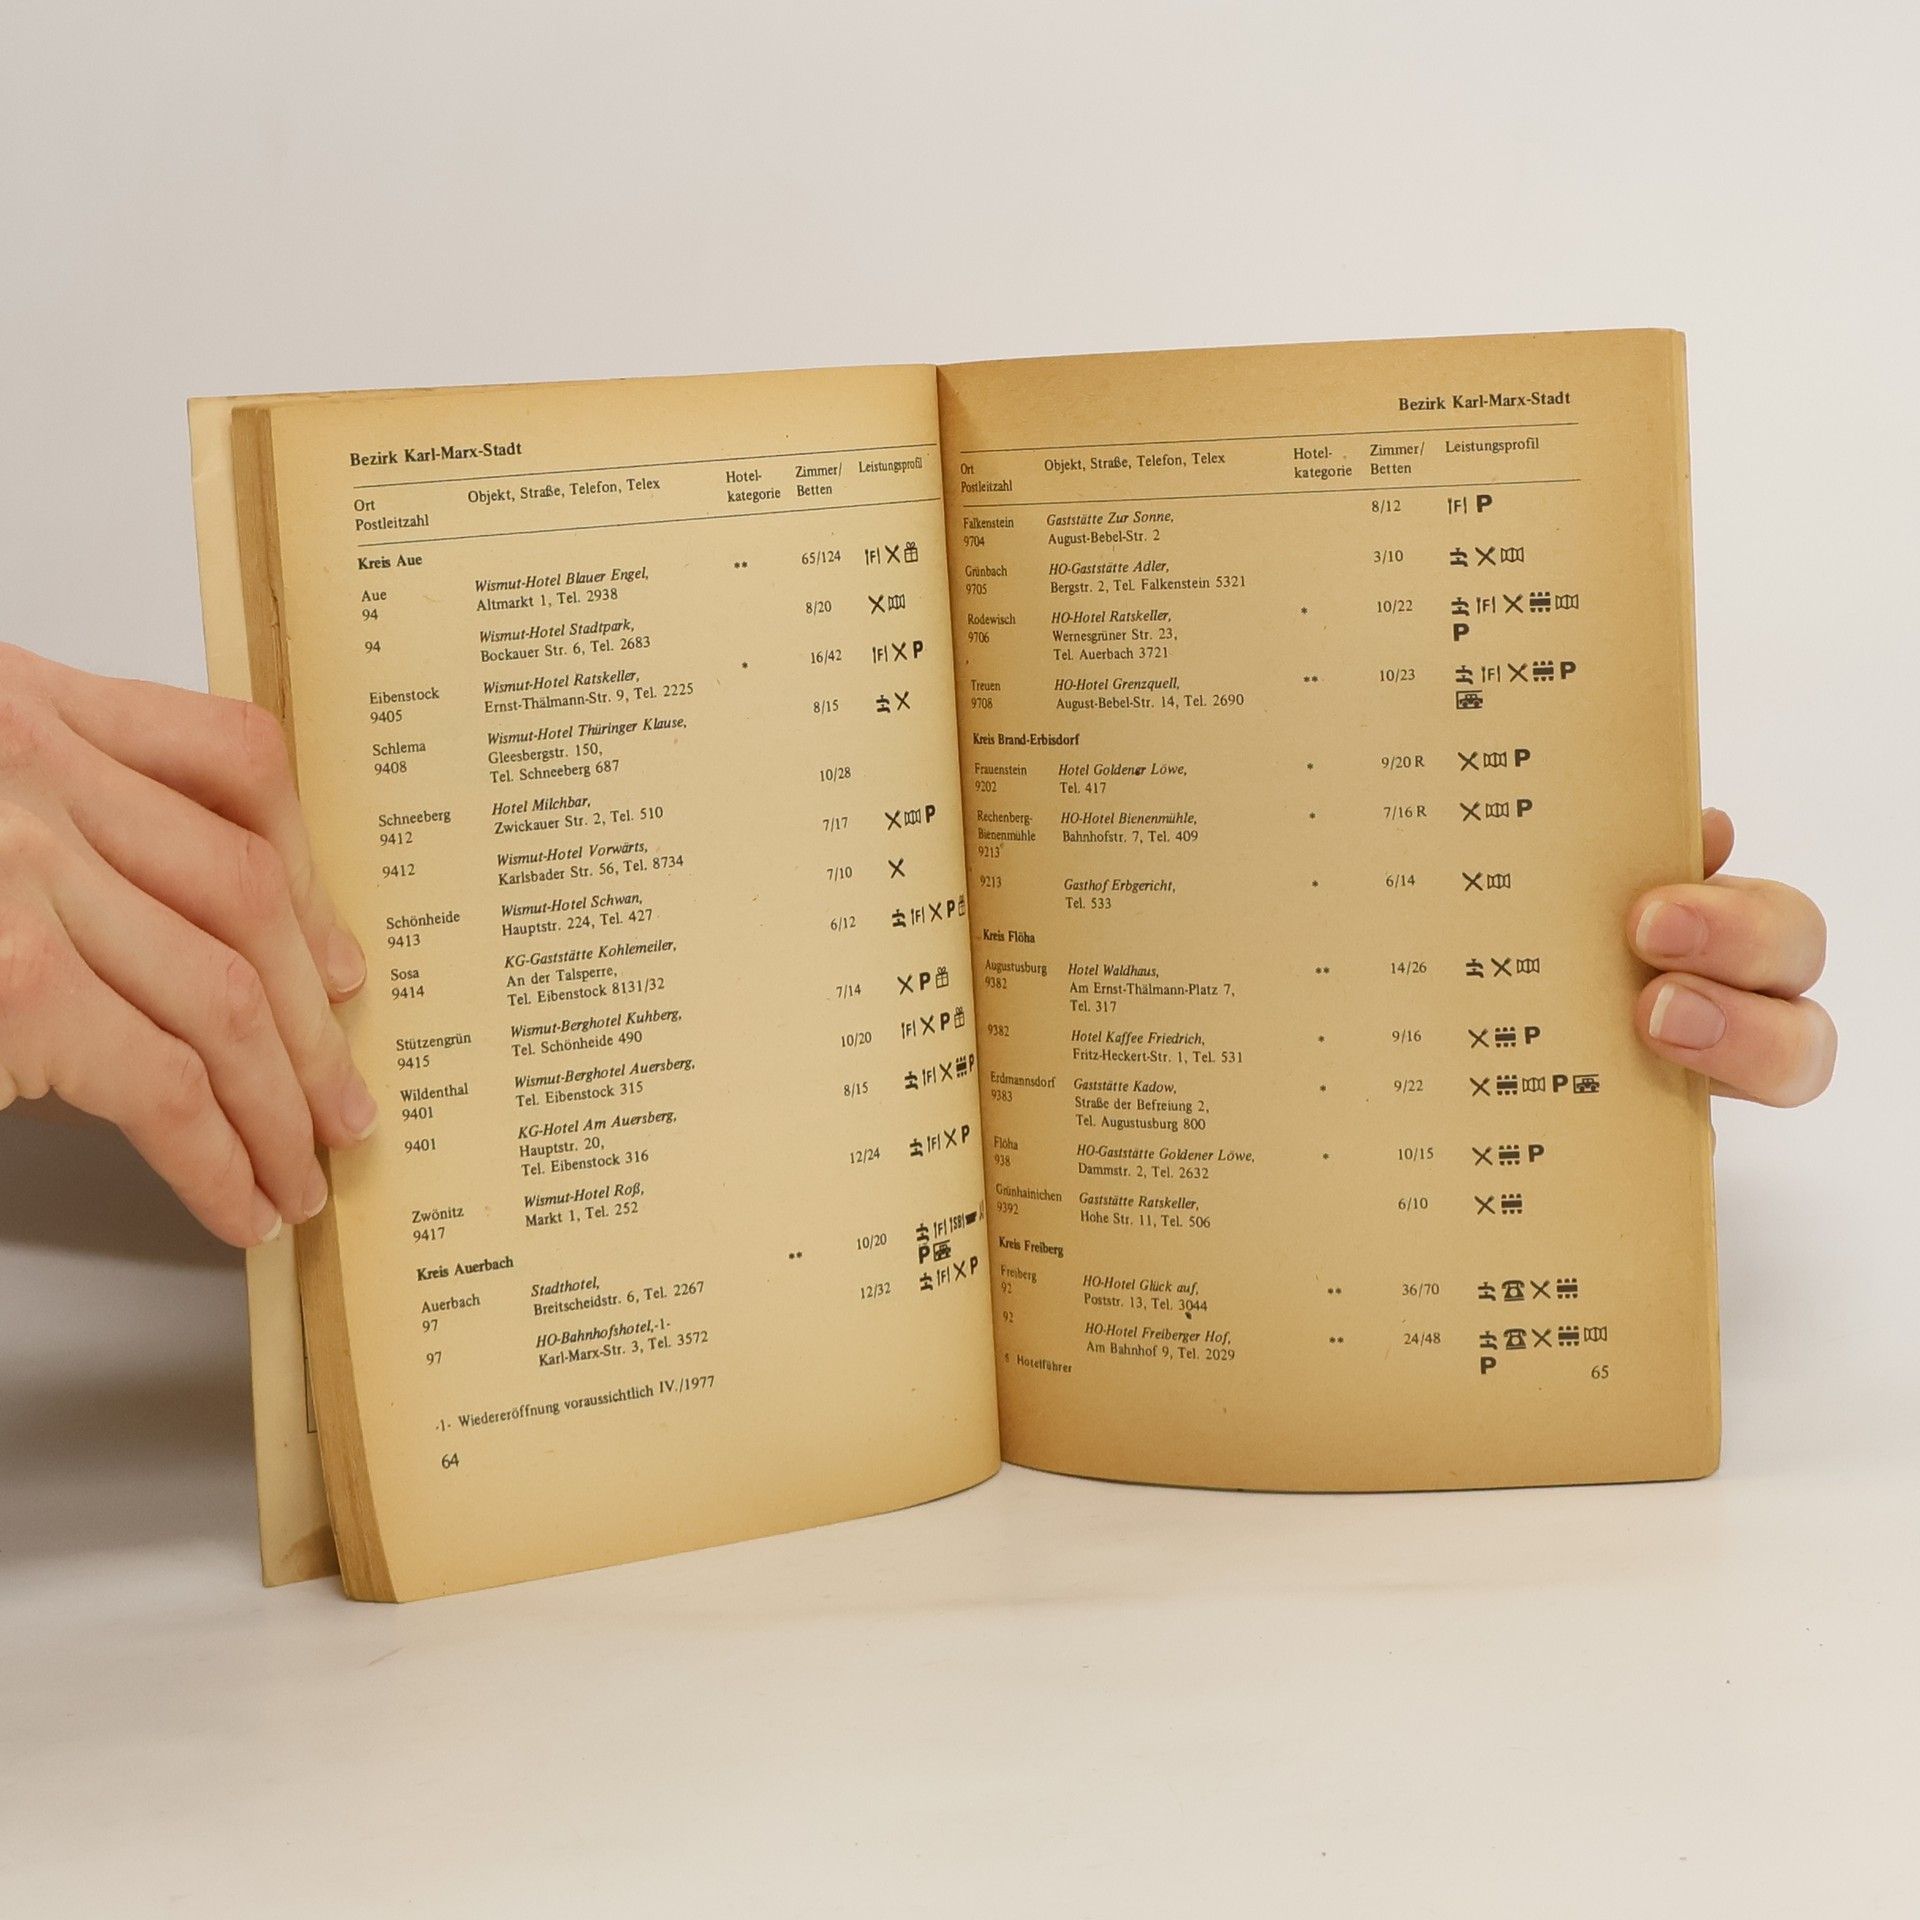 Bezirk Karl-Marx-Stadt
Ort
Postleitzahl
Objekt, Straße, Telefon, Telex
Hotel-
kategorie
Zimmer/
Betten
Leistungsprofil
Kreis Aue
Aue
94
Wismut-Hotel Blauer Engel,
Altmarkt 1, Tel. 2938
**
65/124
94
Wismut-Hotel Stadtpark,
Bockauer Str. 6, Tel. 2683
8/20
Eibenstock
9405
Wismut-Hotel Ratskeller,
Ernst-Thälmann-Str. 9, Tel. 2225
*
16/42
P
Schlema
9408
Wismut-Hotel Thüringer Klause,
Gleesbergstr. 150,
Tel. Schneeberg 687
8/15
Schneeberg
9412
Hotel Milchbar,
Zwickauer Str. 2, Tel. 510
10/28
9412
Wismut-Hotel Vorwärts,
Karlsbader Str. 56, Tel. 8734
7/17
P
Schönheide
9413
Wismut-Hotel Schwan,
Hauptstr. 224, Tel. 427
7/10
Sosa
9414
KG-Gaststätte Kohlemeiler,
An der Talsperre,
Tel. Eibenstock 8131/32
6/12
P
Stützengrün
9415
Wismut-Berghotel Kuhberg,
Tel. Schönheide 490
7/14
P
Wildenthal
9401
Wismut-Berghotel Auersberg,
Tel. Eibenstock 315
10/20
P
9401
KG-Hotel Am Auersberg,
Hauptstr. 20,
Tel. Eibenstock 316
8/15
P
Zwönitz
9417
Wismut-Hotel Roß,
Markt 1, Tel. 252
12/24
P
Kreis Auerbach
Auerbach
97
Stadthotel,
Breitscheidstr. 6, Tel. 2267
**
10/20
P
97
HO-Bahnhofshotel,-1-
Karl-Marx-Str. 3, Tel. 3572
12/32
P
-1- Wiedereröffnung voraussichtlich IV./1977
64
Bezirk Karl-Marx-Stadt
Ort
Postleitzahl
Objekt, Straße, Telefon, Telex
Hotel-
kategorie
Zimmer/
Betten
Leistungsprofil
Falkenstein
9704
Gaststätte Zur Sonne,
August-Bebel-Str. 2
8/12
P
Grünbach
9705
HO-Gaststätte Adler,
Bergstr. 2, Tel. Falkenstein 5321
3/10
Rodewisch
9706
HO-Hotel Ratskeller,
Wernesgrüner Str. 23,
Tel. Auerbach 3721
*
10/22
P
Treuen
9708
HO-Hotel Grenzquell,
August-Bebel-Str. 14, Tel. 2690
**
10/23
P
Kreis Brand-Erbisdorf
Frauenstein
9202
Hotel Goldener Löwe,
Tel. 417
*
9/20 R
P
Rechenberg-
Bienenmühle
9213
HO-Hotel Bienenmühle,
Bahnhofstr. 7, Tel. 409
*
7/16 R
P
9213
Gasthof Erbgericht,
Tel. 533
*
6/14
Kreis Flöha
Augustusburg
9382
Hotel Waldhaus,
Am Ernst-Thälmann-Platz 7,
Tel. 317
**
14/26
9382
Hotel Kaffee Friedrich,
Fritz-Heckert-Str. 1, Tel. 531
*
9/16
P
Erdmannsdorf
9383
Gaststätte Kadow,
Straße der Befreiung 2,
Tel. Augustusburg 800
*
9/22
P
Flöha
938
HO-Gaststätte Goldener Löwe,
Dammstr. 2, Tel. 2632
*
10/15
P
Grünhainichen
9392
Gaststätte Ratskeller,
Hohe Str. 11, Tel. 506
6/10
Kreis Freiberg
Freiberg
92
HO-Hotel Glück auf,
Poststr. 13, Tel. 3044
**
36/70
92
HO-Hotel Freiberger Hof,
Am Bahnhof 9, Tel. 2029
**
24/48
P
Hotelführer
65